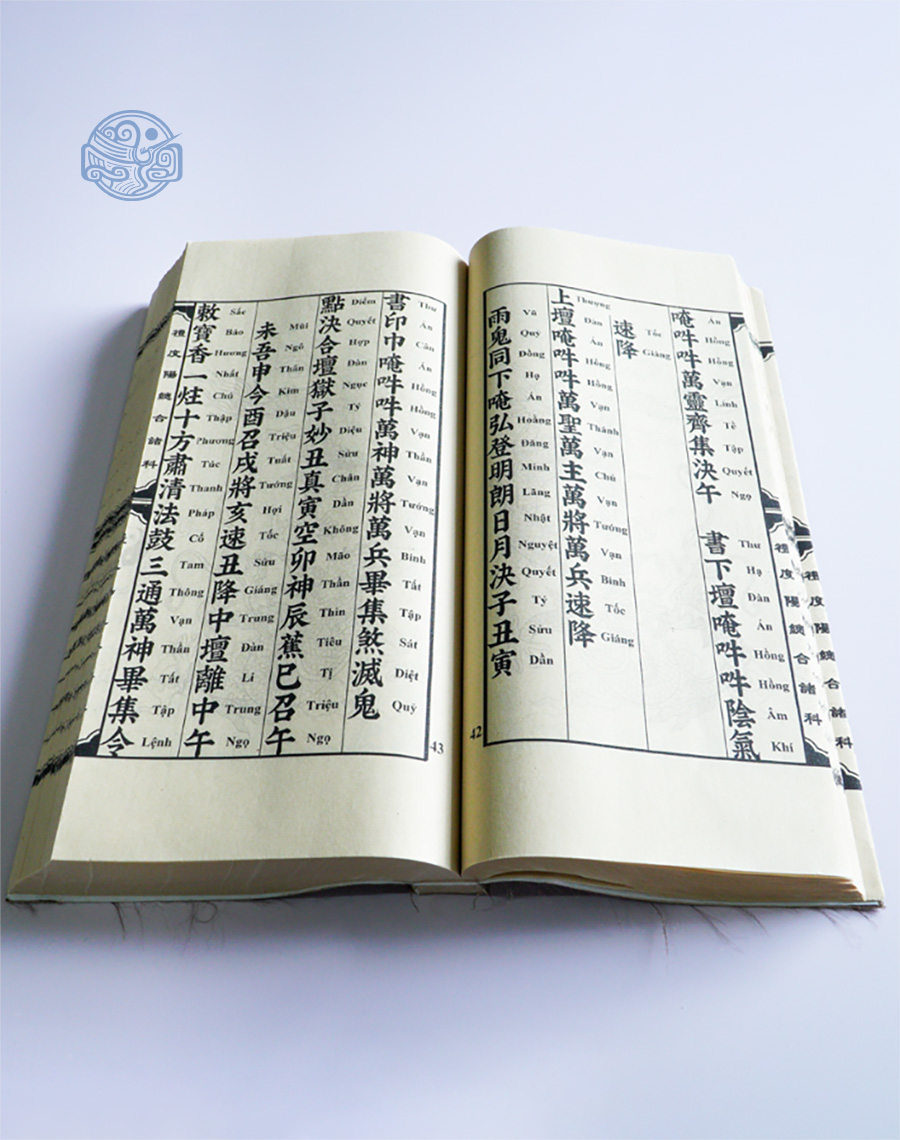 禮度陽合諸科
禮度陽合諸科
唵吽吽萬靈齊集決午 書下壇唵吽吽陰氣
Án Hồng Hồng Vạn Linh Tề Tập Quyết Ngọ Thư Hạ Đàn Án Hồng Hồng Âm Khí
速降
Tốc Giáng
上壇唵吽吽萬聖萬主萬將萬兵速降
Thượng Đàn Án Hồng Hồng Vạn Thánh Vạn Chủ Vạn Tướng Vạn Binh Tốc Giáng
雨鬼同下唵弘登明朗日月決子丑寅
Vũ Quỷ Đồng Hạ Án Hoằng Đăng Minh Lãng Nhật Nguyệt Quyết Tý Sửu Dần
42
書印巾唵吽吽萬神萬將萬兵畢集煞滅鬼
Thư Ấn Cân Án Hồng Hồng Vạn Thần Vạn Tướng Vạn Binh Tất Tập Sát Diệt Quỷ
點決合壇獄子妙丑真寅空卯神辰蕉巳召午
Điểm Quyết Hợp Đàn Ngục Tý Diệu Sửu Chân Dần Không Mão Thần Thìn Tiêu Tị Triệu Ngọ
未吾申今酉召戌將亥速丑降中壇離中午
Mùi Ngô Thân Kim Dậu Triệu Tuất Tướng Hợi Tốc Sửu Giáng Trung Đàn Li Trung Ngọ
敕寶香一炷十方肅清法鼓三通萬神畢集令
Sắc Bảo Hương Nhất Chú Thập Phương Túc Thanh Pháp Cổ Tam Thông Vạn Thần Tất Tập Lệnh
禮度陽合諸科
43